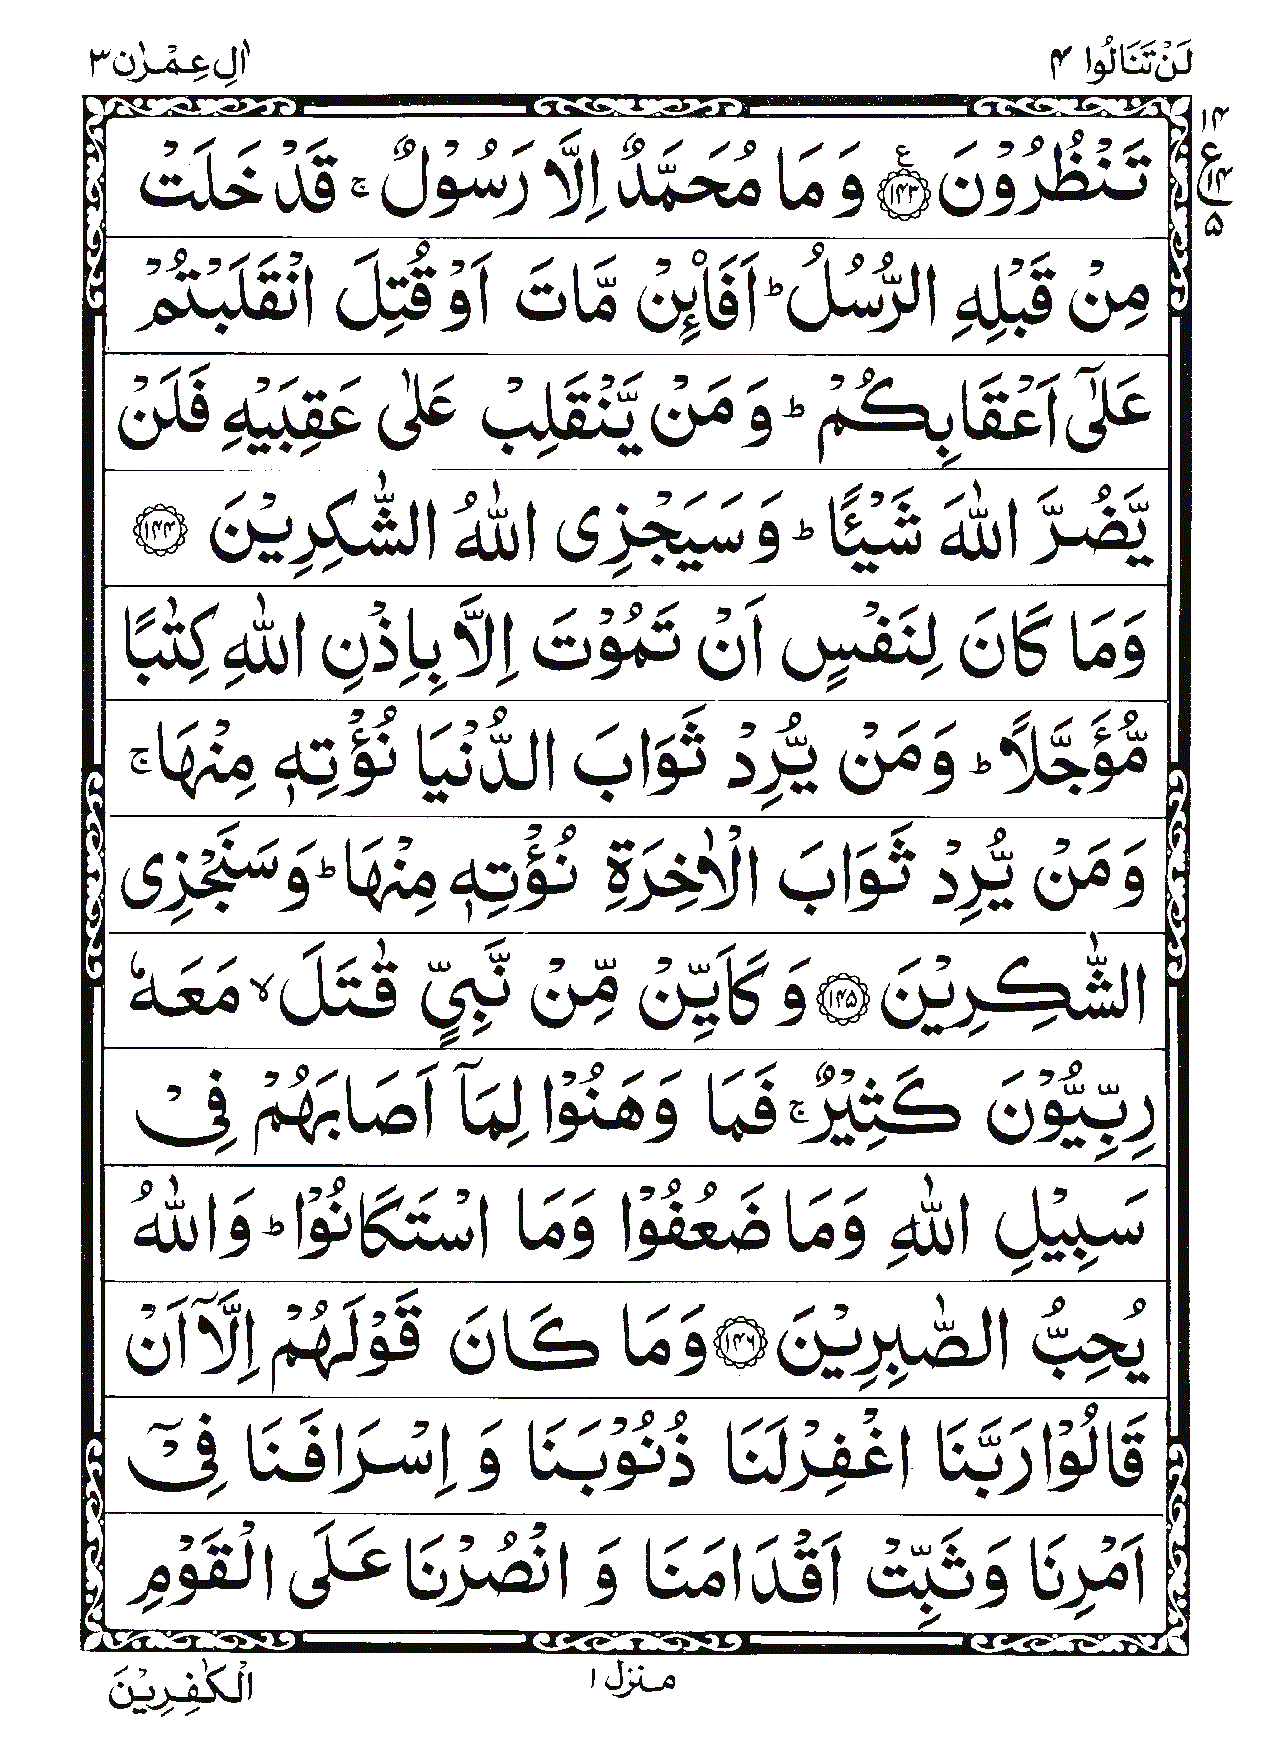 لَنْ تَنَالُوا ۴
اٰلِ عِمْرٰن ۳
۱۴
ع
۱۴
۵
تَنْظُرُوْنَ ﴿۱۴۳﴾ ع وَ مَا مُحَمَّدٌ اِلَّا رَسُوْلٌ ۚ قَدْ خَلَتْ
مِنْ قَبْلِهِ الرُّسُلُ ؕ اَفَا۠ئِنْ مَّاتَ اَوْ قُتِلَ انْقَلَبْتُمْ
عَلٰۤى اَعْقَابِكُمْ ؕ وَ مَنْ يَّنْقَلِبْ عَلٰى عَقِبَيْهِ فَلَنْ
يَّضُرَّ اللّٰهَ شَيْـًٔا ؕ وَ سَيَجْزِى اللّٰهُ الشّٰكِرِيْنَ ﴿۱۴۴﴾
وَمَا كَانَ لِنَفْسٍ اَنْ تَمُوْتَ اِلَّا بِاِذْنِ اللّٰهِ كِتٰبًا
مُّؤَجَّلًا ؕ وَ مَنْ يُّرِدْ ثَوَابَ الدُّنْيَا نُؤْتِهٖ مِنْهَا ۚ
وَ مَنْ يُّرِدْ ثَوَابَ الْاٰخِرَةِ نُؤْتِهٖ مِنْهَا ؕ وَ سَنَجْزِى
الشّٰكِرِيْنَ ﴿۱۴۵﴾ وَ كَاَيِّنْ مِّنْ نَّبِيٍّ قٰتَلَ ۙ مَعَهٗ
رِبِّيُّوْنَ كَثِيْرٌ ۚ فَمَا وَهَنُوْا لِمَاۤ اَصَابَهُمْ فِىْ
سَبِيْلِ اللّٰهِ وَمَا ضَعُفُوْا وَمَا اسْتَكَانُوْا ؕ وَاللّٰهُ
يُحِبُّ الصّٰبِرِيْنَ ﴿۱۴۶﴾ وَمَا كَانَ قَوْلَهُمْ اِلَّاۤ اَنْ
قَالُوْا رَبَّنَا اغْفِرْ لَنَا ذُنُوْبَنَا وَ اِسْرَافَنَا فِىْۤ
اَمْرِنَا وَ ثَبِّتْ اَقْدَامَنَا وَ انْصُرْنَا عَلَى الْقَوْمِ
منزل ۱
الْكٰفِرِيْنَ